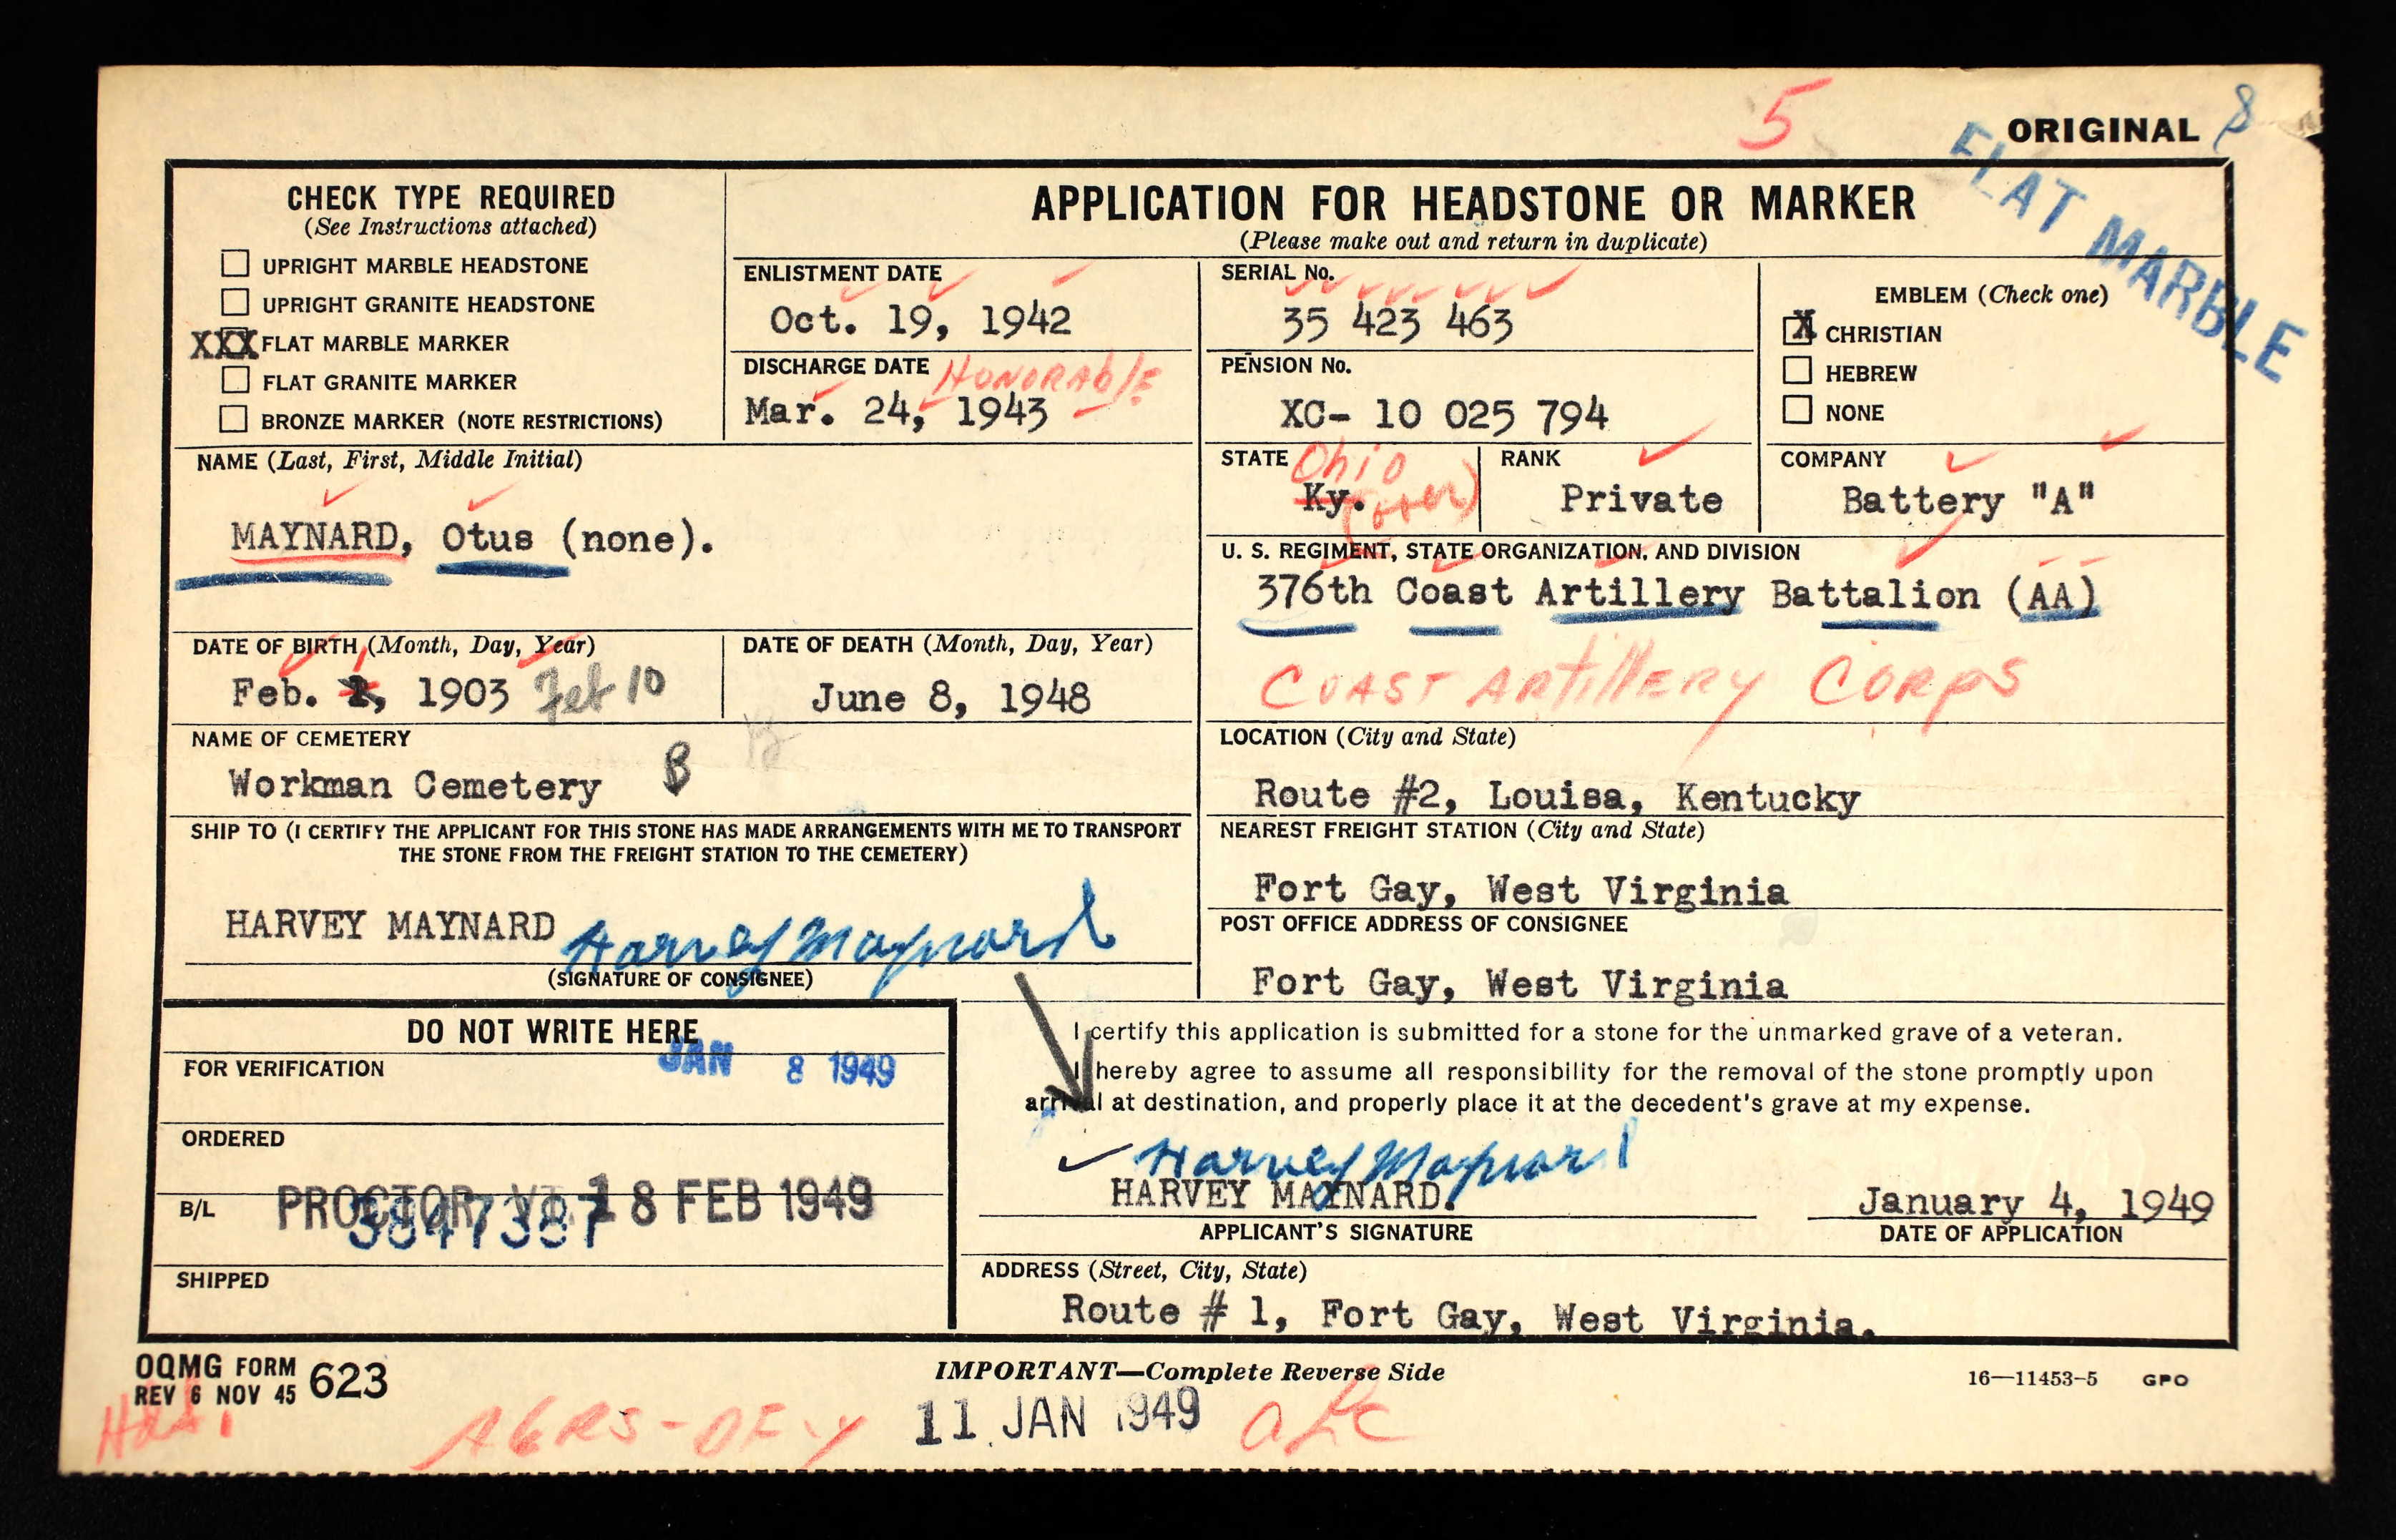 5
ORIGINAL 8
FLAT MARBLE
CHECK TYPE REQUIRED
(See Instructions attached)
UPRIGHT MARBLE HEADSTONE
UPRIGHT GRANITE HEADSTONE
XXX FLAT MARBLE MARKER
FLAT GRANITE MARKER
BRONZE MARKER (NOTE RESTRICTIONS)
APPLICATION FOR HEADSTONE OR MARKER
(Please make out and return in duplicate)
ENLISTMENT DATE
Oct. 19, 1942
DISCHARGE DATE HONORABLE
Mar. 24, 1943
SERIAL No.
35 423 463
PENSION No.
XC- 10 025 794
EMBLEM (Check one)
X CHRISTIAN
HEBREW
NONE
NAME (Last, First, Middle Initial)
MAYNARD, Otus (none).
STATE Ohio
Ky. (over)
RANK
Private
COMPANY
Battery "A"
U. S. REGIMENT, STATE ORGANIZATION, AND DIVISION
376th Coast Artillery Battalion (AA)
COAST ARTILLERY CORPS
DATE OF BIRTH (Month, Day, Year)
Feb. 1, 1903 Feb 10
DATE OF DEATH (Month, Day, Year)
June 8, 1948
NAME OF CEMETERY
Workman Cemetery B
LOCATION (City and State)
Route #2, Louisa, Kentucky
SHIP TO (I CERTIFY THE APPLICANT FOR THIS STONE HAS MADE ARRANGEMENTS WITH ME TO TRANSPORT
THE STONE FROM THE FREIGHT STATION TO THE CEMETERY)
HARVEY MAYNARD Harvey Maynard
(SIGNATURE OF CONSIGNEE)
NEAREST FREIGHT STATION (City and State)
Fort Gay, West Virginia
POST OFFICE ADDRESS OF CONSIGNEE
Fort Gay, West Virginia
DO NOT WRITE HERE
JAN 8 1949
FOR VERIFICATION
ORDERED
B/L PROCTOR, VT. 18 FEB 1949
3847387
SHIPPED
I certify this application is submitted for a stone for the unmarked grave of a veteran.
I hereby agree to assume all responsibility for the removal of the stone promptly upon
arrival at destination, and properly place it at the decedent's grave at my expense.
Harvey Maynard
HARVEY MAYNARD.
APPLICANT'S SIGNATURE
January 4, 1949
DATE OF APPLICATION
ADDRESS (Street, City, State)
Route # 1, Fort Gay, West Virginia.
OQMG FORM 623
REV 6 NOV 45
IMPORTANT—Complete Reverse Side
16—11453-5 GPO
11 JAN 1949